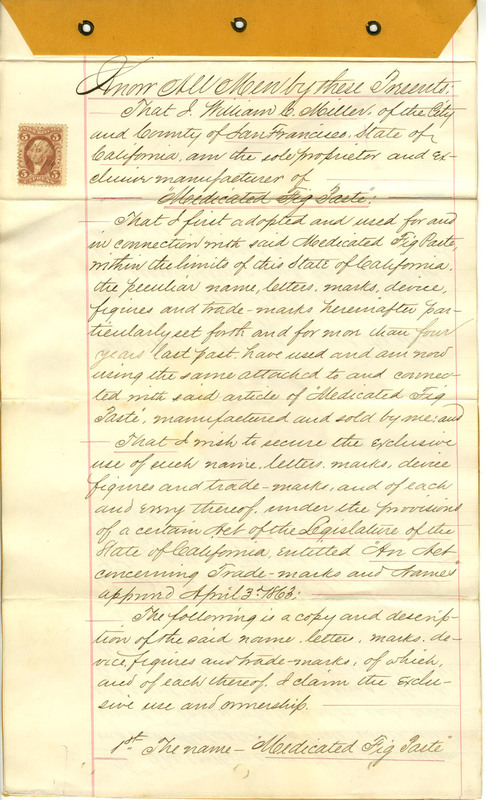 Know All Men by these Presents:
That I, William C. Miller, of the City
and County of San Francisco, State of
California, am the sole proprietor and ex-
clusive manufacturer of
"Medicated Fig Paste".
That I first adopted and used for and
in connection with said Medicated Fig Paste,
within the limits of this State of California,
the peculiar name, letters, marks, device,
figures and trade-marks hereinafter par-
ticularly set forth and for more than four
years last past have used and am now
using the same attached to and connec-
ted with said article of "Medicated Fig
Paste", manufactured and sold by me; and
That I wish to secure the exclusive
use of such name, letters, marks, device
figures and trade-marks, and of each
and every thereof, under the provisions
of a certain Act of the Legislature of the
State of California, entitled "An Act
concerning Trade-marks and Names"
approved April 3d 1863:
The following is a copy and descrip-
tion of the said name, letters, marks, de-
vice, figures and trade-marks, of which,
and of each thereof, I claim the exclu-
sive use and ownership.
1st The name - "Medicated Fig Paste"
5 5